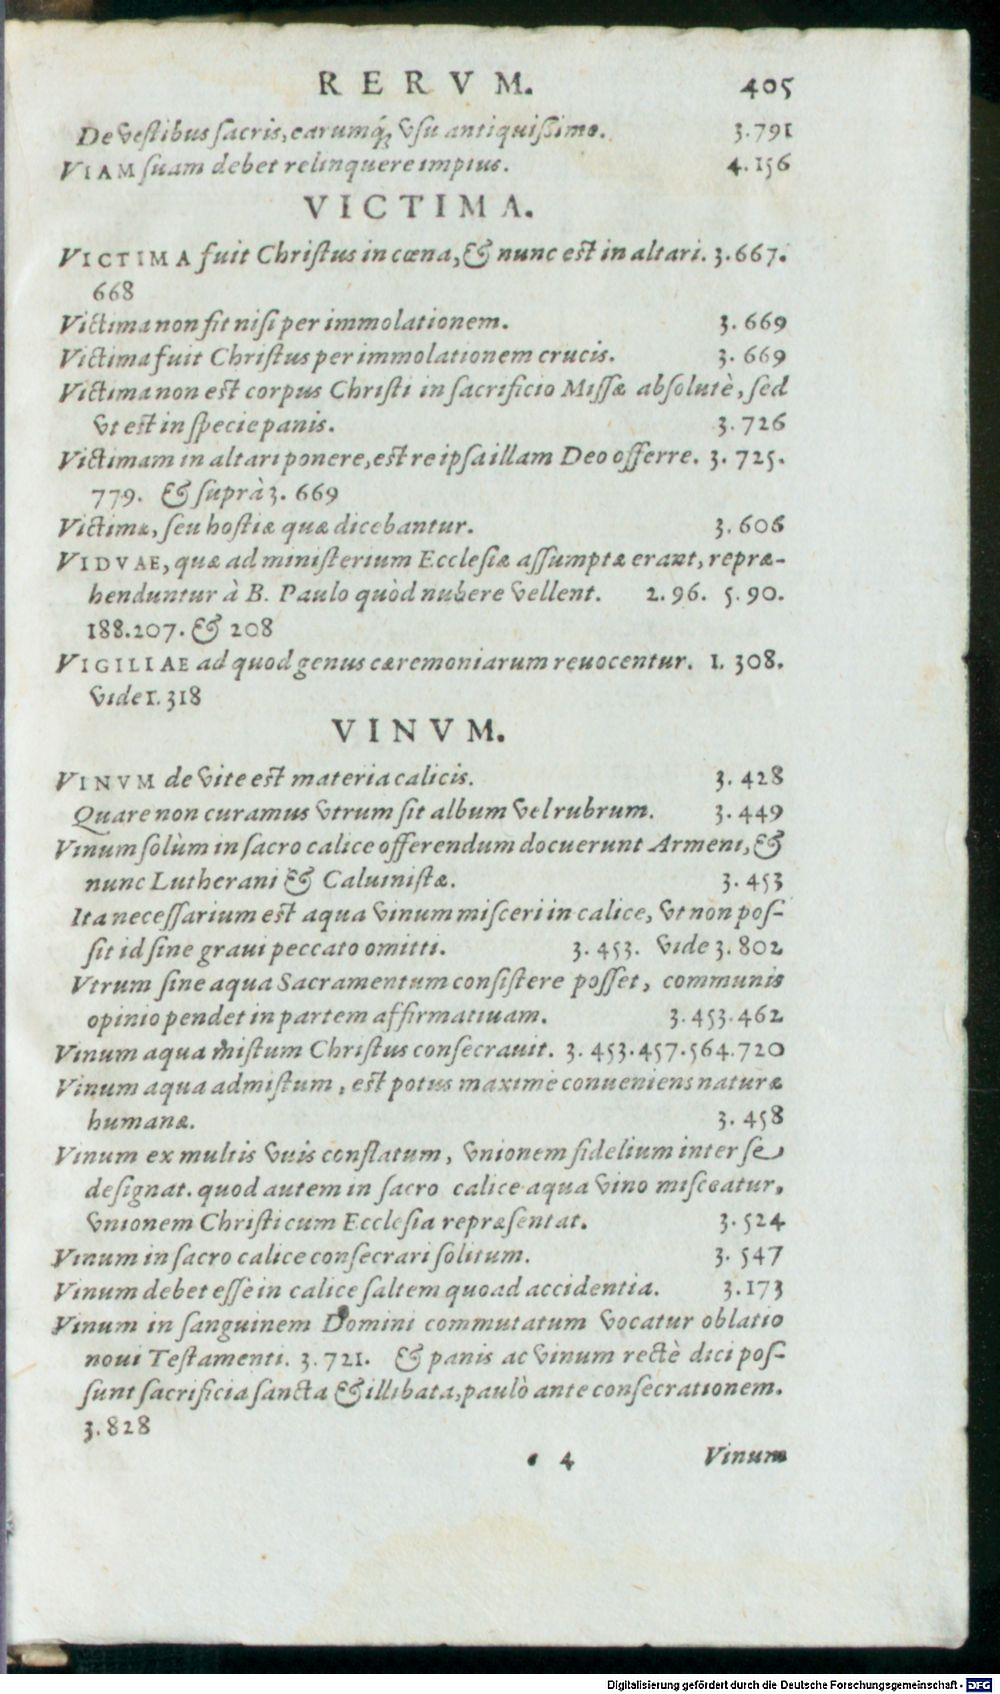 RERVM. 405
De vestibus sacris, earumq́; vsu antiquissimo. 3.791
VIAM suam debet relinquere impius. 4.156
VICTIMA.
VICTIMA fuit Christus in cœna, & nunc est in altari. 3.667.
668
Victima non fit nisi per immolationem. 3.669
Victima fuit Christus per immolationem crucis. 3.669
Victima non est corpus Christi in sacrificio Missæ absolutè, sed
vt est in specie panis. 3.726
Victimam in altari ponere, est reipsa illam Deo offerre. 3.725.
779. & suprà 3.669
Victimæ, seu hostiæ quæ dicebantur. 3.606
VIDVAE, quæ ad ministerium Ecclesiæ assumptæ erant, repræ-
henduntur à B. Paulo quòd nubere vellent. 2.96. 5.90.
188.207. & 208
VIGILIAE ad quod genus cæremoniarum reuocentur. 1.308.
vide 1.318
VINVM.
VINVM de vite est materia calicis. 3.428
Quare non curamus vtrum sit album vel rubrum. 3.449
Vinum solùm in sacro calice offerendum docuerunt Armeni, &
nunc Lutherani & Caluinistæ. 3.453
Ita necessarium est aqua vinum misceri in calice, vt non pos-
sit id sine graui peccato omitti. 3.453. vide 3.802
Vtrum sine aqua Sacramentum consistere posset, communis
opinio pendet in partem affirmatiuam. 3.453.462
Vinum aqua mistum Christus consecrauit. 3.453.457.564.720
Vinum aqua admistum, est potus maximè conueniens naturæ
humanæ. 3.458
Vinum ex multis vuis conflatum, vnionem fidelium inter se
designat. quod autem in sacro calice aqua vino misceatur,
vnionem Christi cum Ecclesia repræsentat. 3.524
Vinum in sacro calice consecrari solitum. 3.547
Vinum debet esse in calice saltem quoad accidentia. 3.173
Vinum in sanguinem Domini commutatum vocatur oblatio
noui Testamenti. 3.721. & panis ac vinum rectè dici pos-
sunt sacrificia sancta & illibata, paulò ante consecrationem.
3.828
4 Vinum
Digitalisierung gefördert durch die Deutsche Forschungsgemeinschaft - DFG